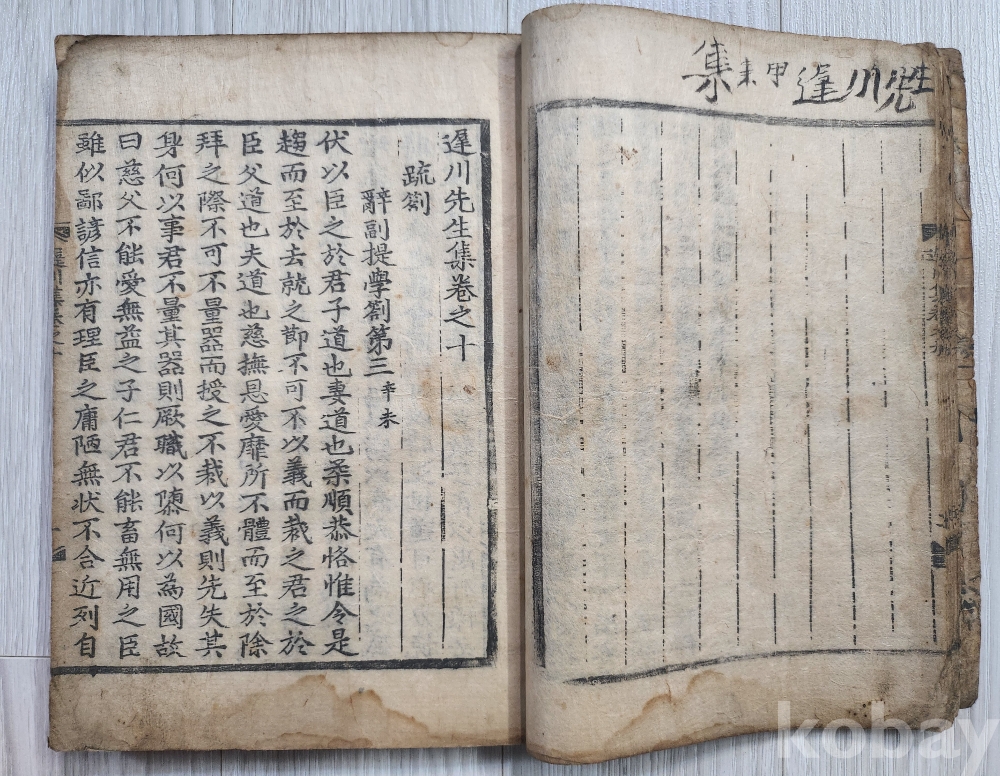 生先川遲甲集
遲川先生集卷之十
疏劄
辭副提學劄第三辛未
伏以臣之於君子道也妻道也柔順恭恪惟令是
趨而至於去就之節不可不以義而裁之君之於
臣父道也夫道也慈撫恩愛靡所不體而至於除
拜之際不可不量器而授之不裁以義則先失其
身何以事君不量其器則厥職以隳何以爲國故
曰慈父不能愛無益之子仁君不能畜無用之臣
雖似鄙諺信亦有理臣之庸陋無狀不合近列自
遲川集卷之十
kobay